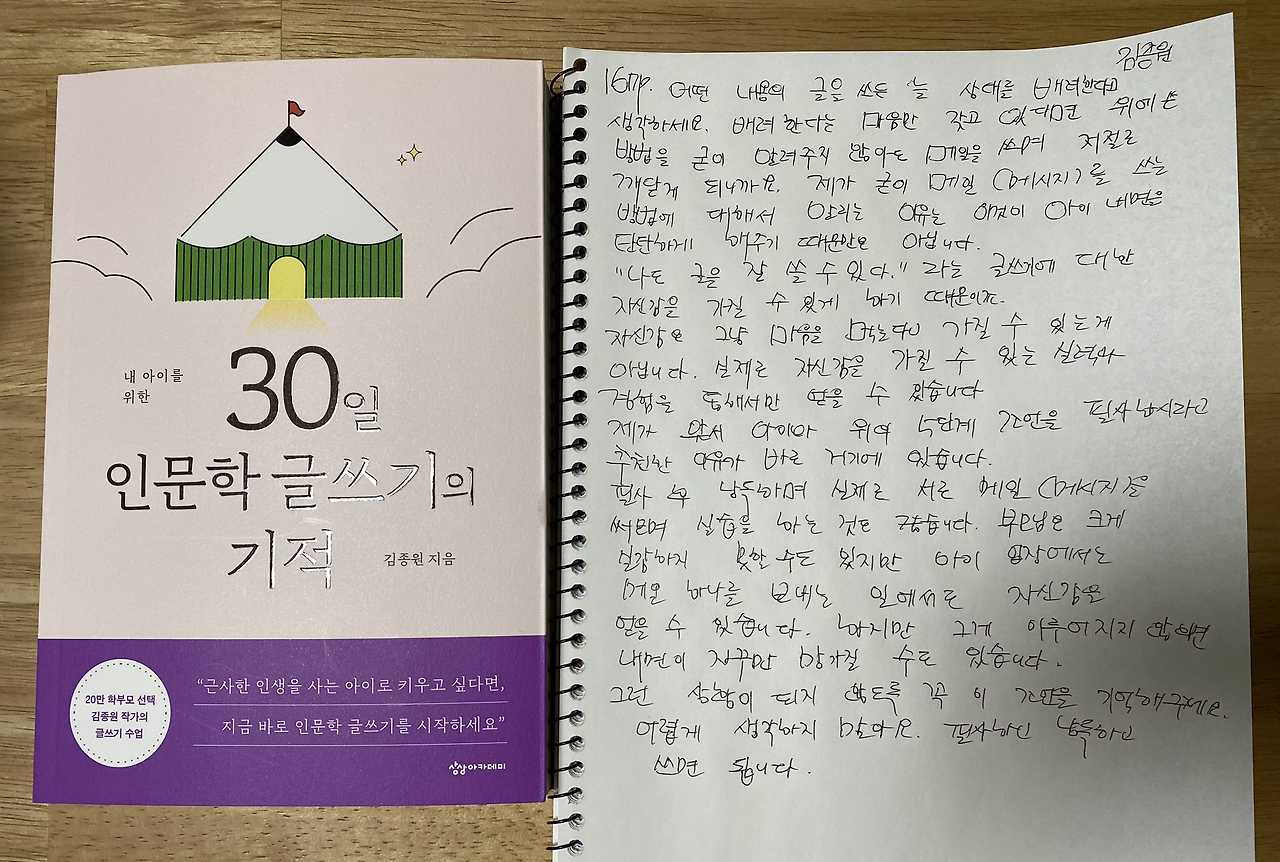 내 아이를
위한
30일
인문학 글쓰기의
기적
김종원 지음
20만 학부모 선택
김종원 작가의
글쓰기 수업
“근사한 인생을 사는 아이로 키우고 싶다면,
지금 바로 인문학 글쓰기를 시작하세요”
상상아카데미
김종원
167p. 어떤 내용의 글을 쓰든 늘 상대를 배려한다고
생각하세요. 배려한다는 마음만 갖고 있다면 위에 쓴
방법을 굳이 알려주지 않아도 메일을 쓰며 저절로
깨닫게 되니까요. 제가 굳이 메일(메시지)를 쓰는
방법에 대해서 알리는 이유는 이것이 아이 내면을
단단하게 해주기 때문만은 아닙니다.
"나도 글을 잘 쓸 수 있다." 라는 글쓰기에 대한
자신감을 가질 수 있게 하기 때문이죠.
자신감은 그냥 마음을 먹는다고 가질 수 있는게
아닙니다. 실제로 자신감을 가질 수 있는 실력과
경험을 통해서만 얻을 수 있습니다
제가 앞서 아이와 위의 5단계 조언을 필사 낭시라고
추천한 이유가 바로 거기에 있습니다.
필사 후 낭독하며 실제로 서로 메일(메시지)을
써보며 실습을 하는 것도 좋습니다. 부모님은 크게
실감하지 못할 수도 있지만 아이 입장에서는
메모 하나를 보내는 일에서도 자신감을
얻을 수 있습니다. 하지만 그게 이루어지지 않으면
내면이 자꾸만 망가질 수도 있습니다.
그런 상황이 되지 않도록 꼭 이 조언을 기억해주세요.
어렵게 생각하지 말아요. 필사하신 낭독하고
쓰면 됩니다.